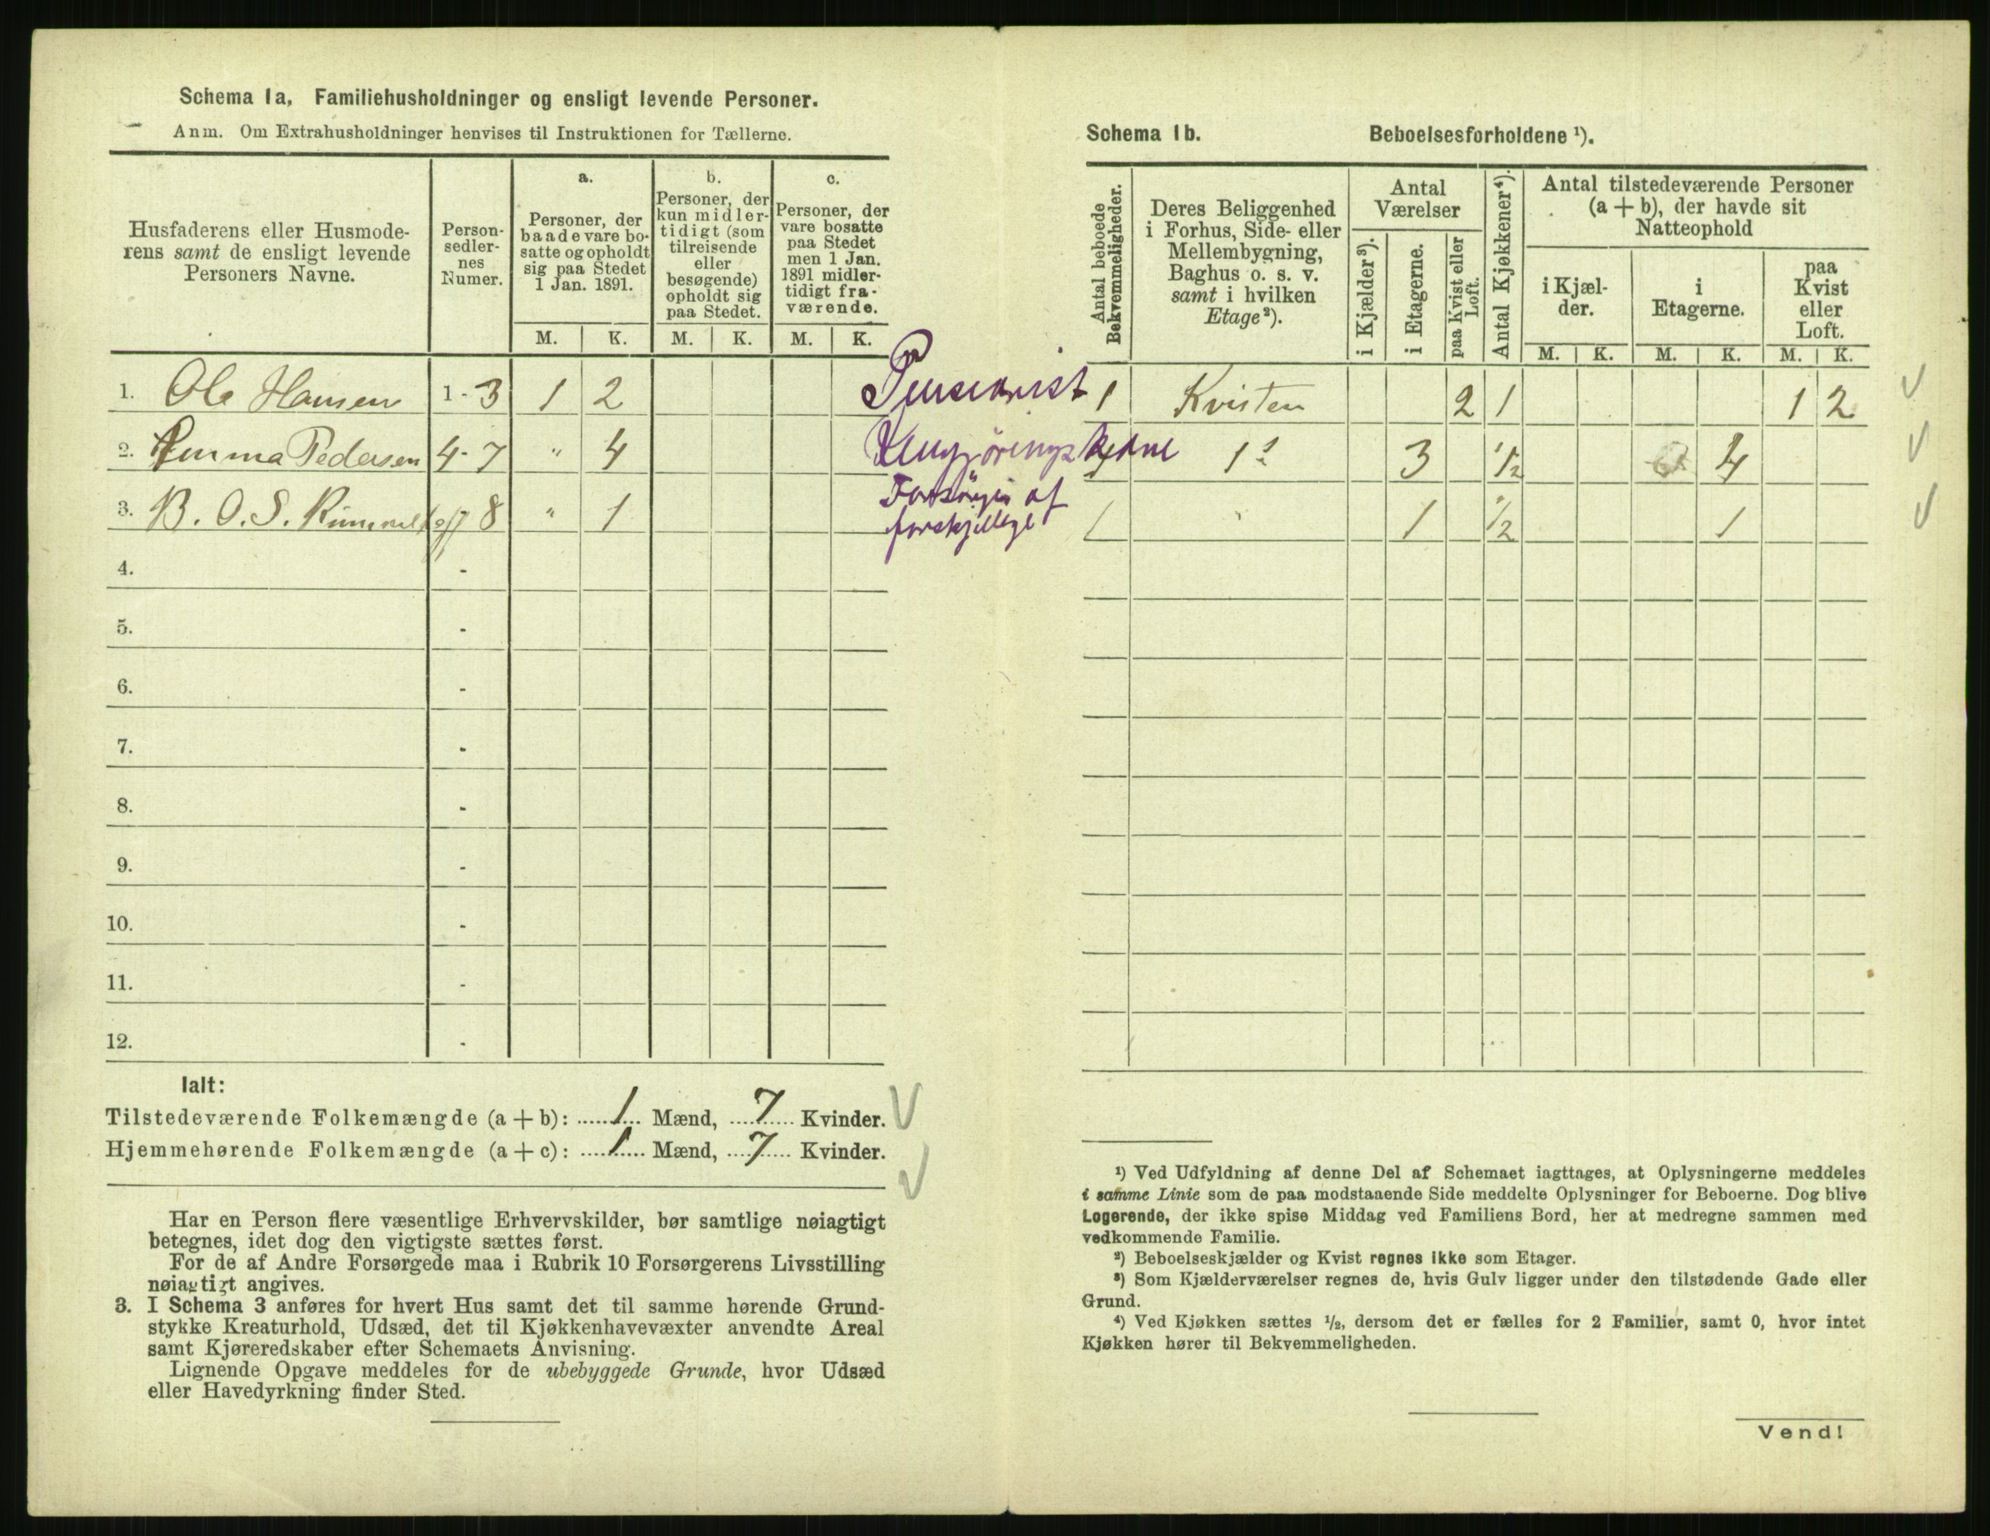 Schema 1a, Familiehusholdninger og ensligt levende Personer.
Anm. Om Extrahusholdninger henvises til Instruktionen for Tællerne.
Husfaderens eller Husmode-
rens samt de ensligt levende
Personers Navne.
Person-
sedler-
nes
Numer.
a.
Personer, der
baade vare bo-
satte og opholdt
sig paa Stedet
1 Jan. 1891.
b.
Personer, der
kun midler-
tidigt (som
tilreisende
eller
besøgende)
opholdt sig
paa Stedet.
c.
Personer, der
vare bosatte
paa Stedet
men 1 Jan.
1891 midler-
tidigt fra-
værende.
M. K. M. K. M. K.
1. Ole Hansen 1-3 1 2 Pensionist
2. Emma Pedersen 4-7 " 4 Rengjøringskone
3. B. O. S. 8 " 1 Forsørges af
forskjellige
4. -
5. -
6. -
7. -
8. -
9. -
10. -
11. -
12. -
Ialt:
Tilstedeværende Folkemængde (a + b): 1 Mænd, 7 Kvinder.
Hjemmehørende Folkemængde (a + c): 1 Mænd, 7 Kvinder.
Har en Person flere væsentlige Erhvervskilder, bør samtlige nøiagtigt
betegnes, idet dog den vigtigste sættes først.
For de af Andre Forsørgede maa i Rubrik 10 Forsørgerens Livsstilling
nøiagtigt angives.
3. I Schema 3 anføres for hvert Hus samt det til samme hørende Grund-
stykke Kreaturhold, Udsæd, det til Kjøkkenhavevæxter anvendte Areal
samt Kjøreredskaber efter Schemaets Anvisning.
Lignende Opgave meddeles for de ubebyggede Grunde, hvor Udsæd
eller Havedyrkning finder Sted.
Schema 1b. Beboelsesforholdene ¹).
Antal beboede
Bekvemmeligheder.
Deres Beliggenhed
i Forhus, Side- eller
Mellembygning,
Baghus o. s. v.
samt i hvilken
Etage²).
Antal
Værelser
i Kjælder³).
i Etagerne.
paa Kvist eller
Loft.
Antal Kjøkkener⁴).
Antal tilstedeværende Personer
(a + b), der havde sit
Natteophold
i Kjæl-
der.
i
Etagerne.
paa
Kvist
eller
Loft.
M. K. M. K. M. K.
1 Kvisten 2 1 1 2
1 3 1/2 4
1 " 1 1/2 1
¹) Ved Udfyldning af denne Del af Schemaet iagttages, at Oplysningerne meddeles
i samme Linie som de paa modstaaende Side meddelte Oplysninger for Beboerne. Dog blive
Logerende, der ikke spise Middag ved Familiens Bord, her at medregne sammen med
vedkommende Familie.
²) Beboelseskjælder og Kvist regnes ikke som Etager.
³) Som Kjælderværelser regnes de, hvis Gulv ligger under den tilstødende Gade eller
Grund.
⁴) Ved Kjøkken sættes ½, dersom det er fælles for 2 Familier, samt 0, hvor intet
Kjøkken hører til Bekvemmeligheden.
Vend!